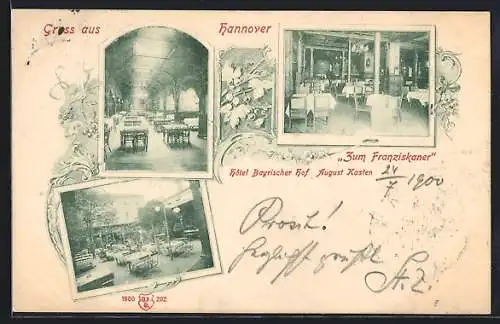 Gruss aus Hannover
„Zum Franziskaner“
Hôtel Bayrischer Hof August Kasten
24/7 1900
Prosit!
Herzlichst grüßt
A. Z.
1900 202